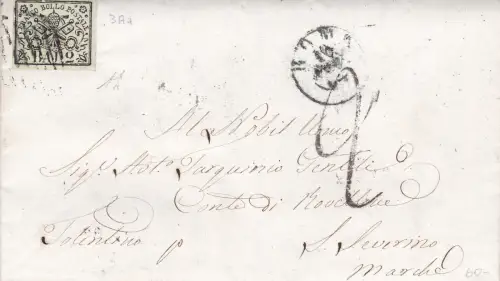 FRANCO BOLLO POSTALE
BAJ
3A2
ROMA
Al Nobil Uomo
Sig.r Ant.o Tarquinio Gentili
Conte di Rovellone
Tolentino p S. Severino
Marche
60-